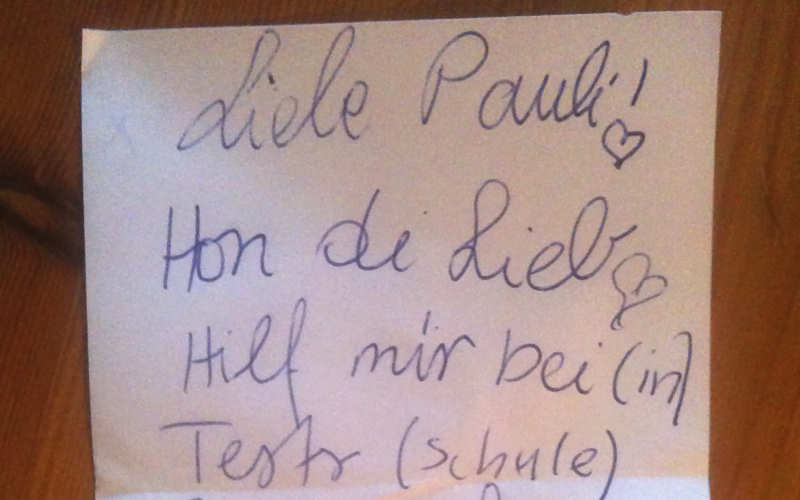 Liebe Pauli!
Hon di Lieb
Hilf mir bei (in)
Tests (schule)